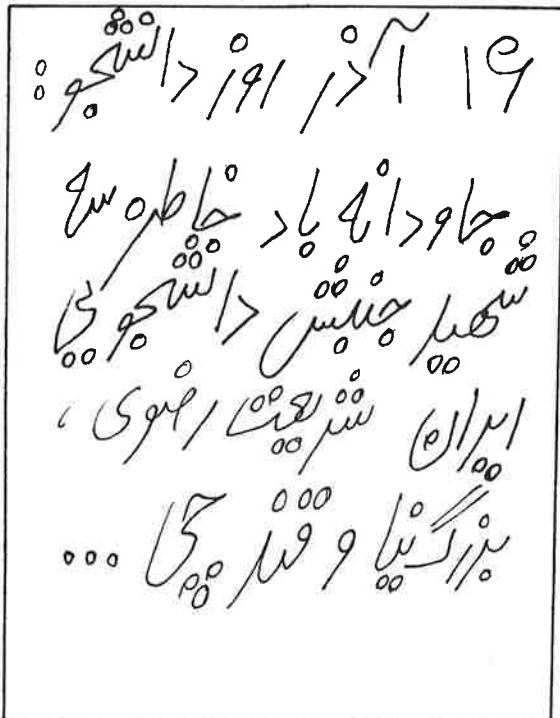 ۱۶ آذر روز دانشجو:
جاودانه باد خاطره سه
شهید جنبش دانشجویی
ایران شریعت رضوی،
بزرگ نیا و قندچی ...